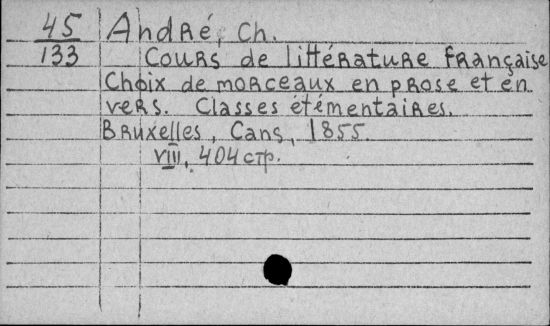 45 André, Ch.
133 Cours de littérature française
Choix de morceaux en prose et en
vers. Classes étémentaires.
Bruxelles, Cans, 1855.
VIII, 404 стр.